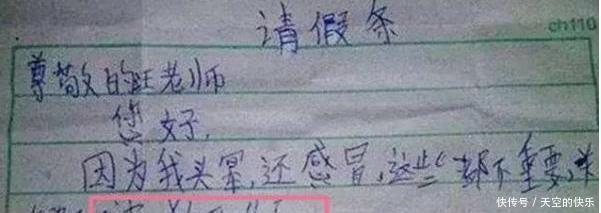 请假条
ch110
尊敬的旺老师
您好，
因为我头晕，还感冒，这些都不重要，
快传号 / 天空的快乐